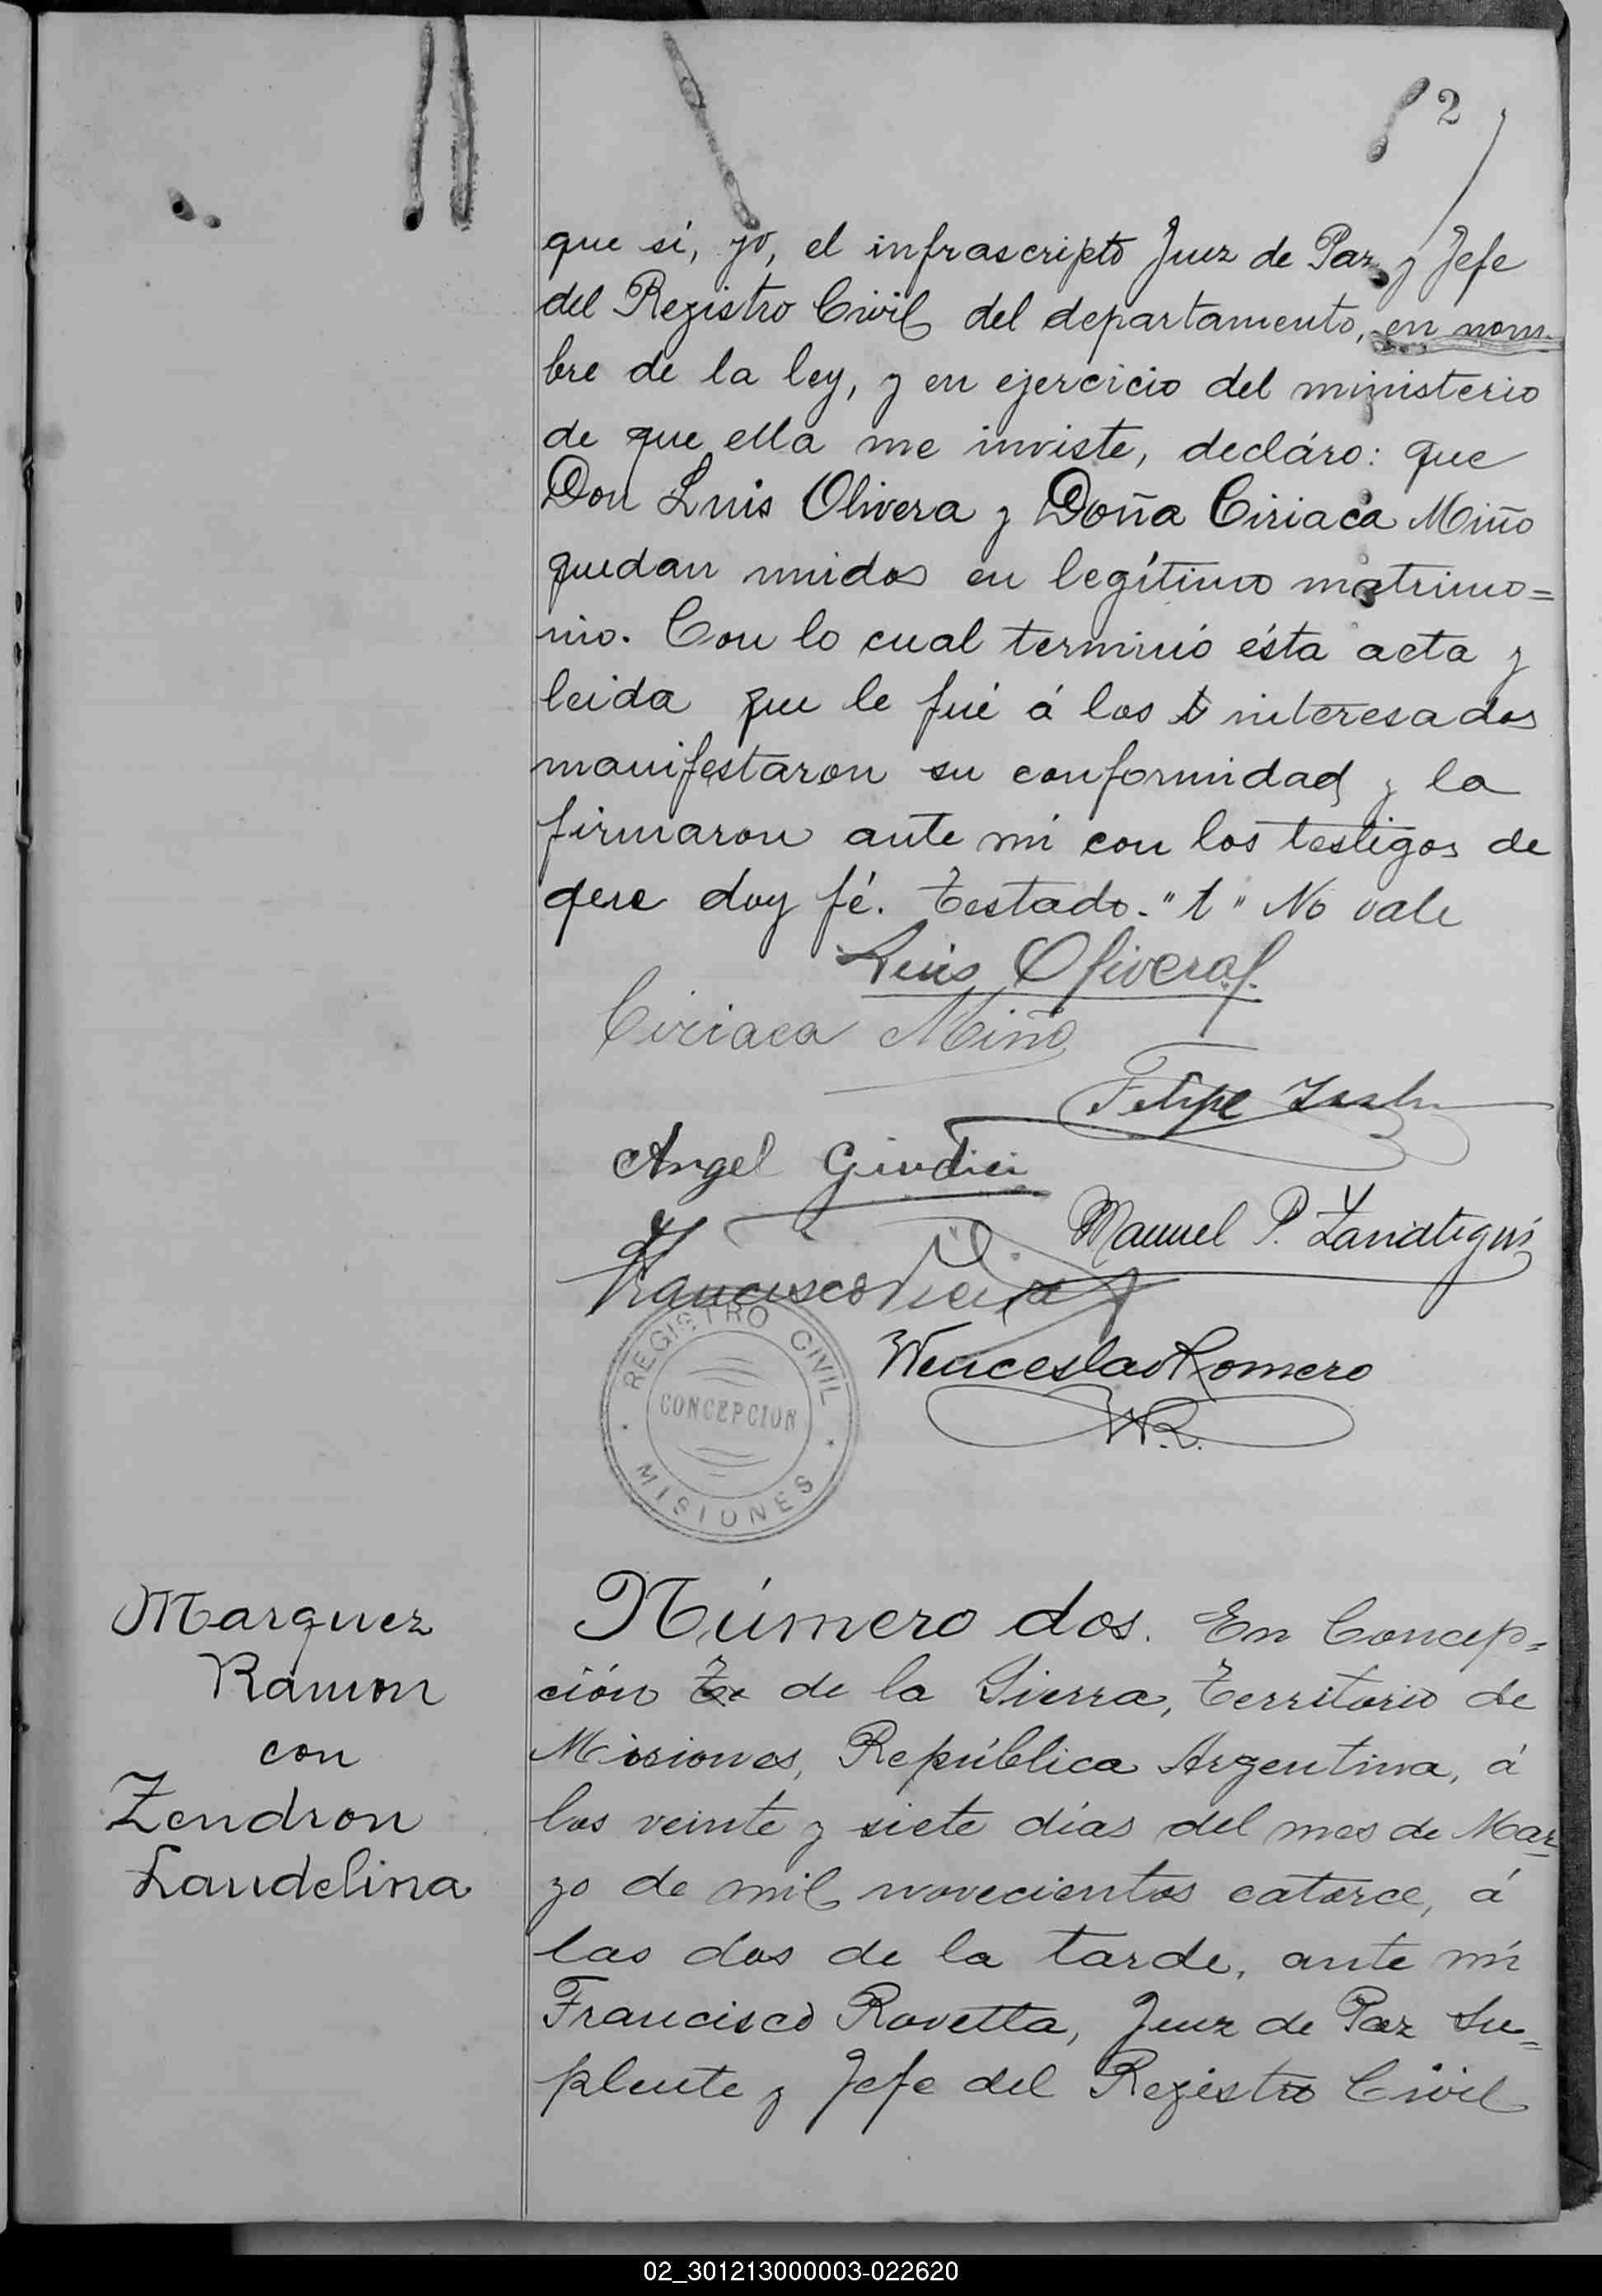 2
que sí, yo, el infrascripto Juez de Paz y Jefe
del Registro Civil del departamento, en nom-
bre de la ley, y en ejercicio del ministerio
de que ella me inviste, decláro: que
Don Luis Olivera y Doña Ciriaca Miño
quedan unidos en legítimo matrimo=
nio. Con lo cual terminó ésta acta y
leida que le fué á los t interesados
manifestaron su conformidad y la
firmaron ante mí con los testigos de
que doy fé. Testado-"t" No vale
Luis Olivera
Ciriaca Miño
Felipe
Angel Giudici
Manuel P.
Francisco
Wenceslao Romero
W.R.
REGISTRO CIVIL
CONCEPCION
MISIONES
Marquez
Ramon
con
Zendron
Laudelina
Número dos. En Concep=
ción Te de la Sierra, Territorio de
Misiones, República Argentina, á
los veinte y siete días del mes de Mar-
zo de mil novecientos catorce, á
las dos de la tarde, ante mí
Francisco Rovetta, Juez de Paz Su=
plente y Jefe del Registro Civil
02_301213000003-022620